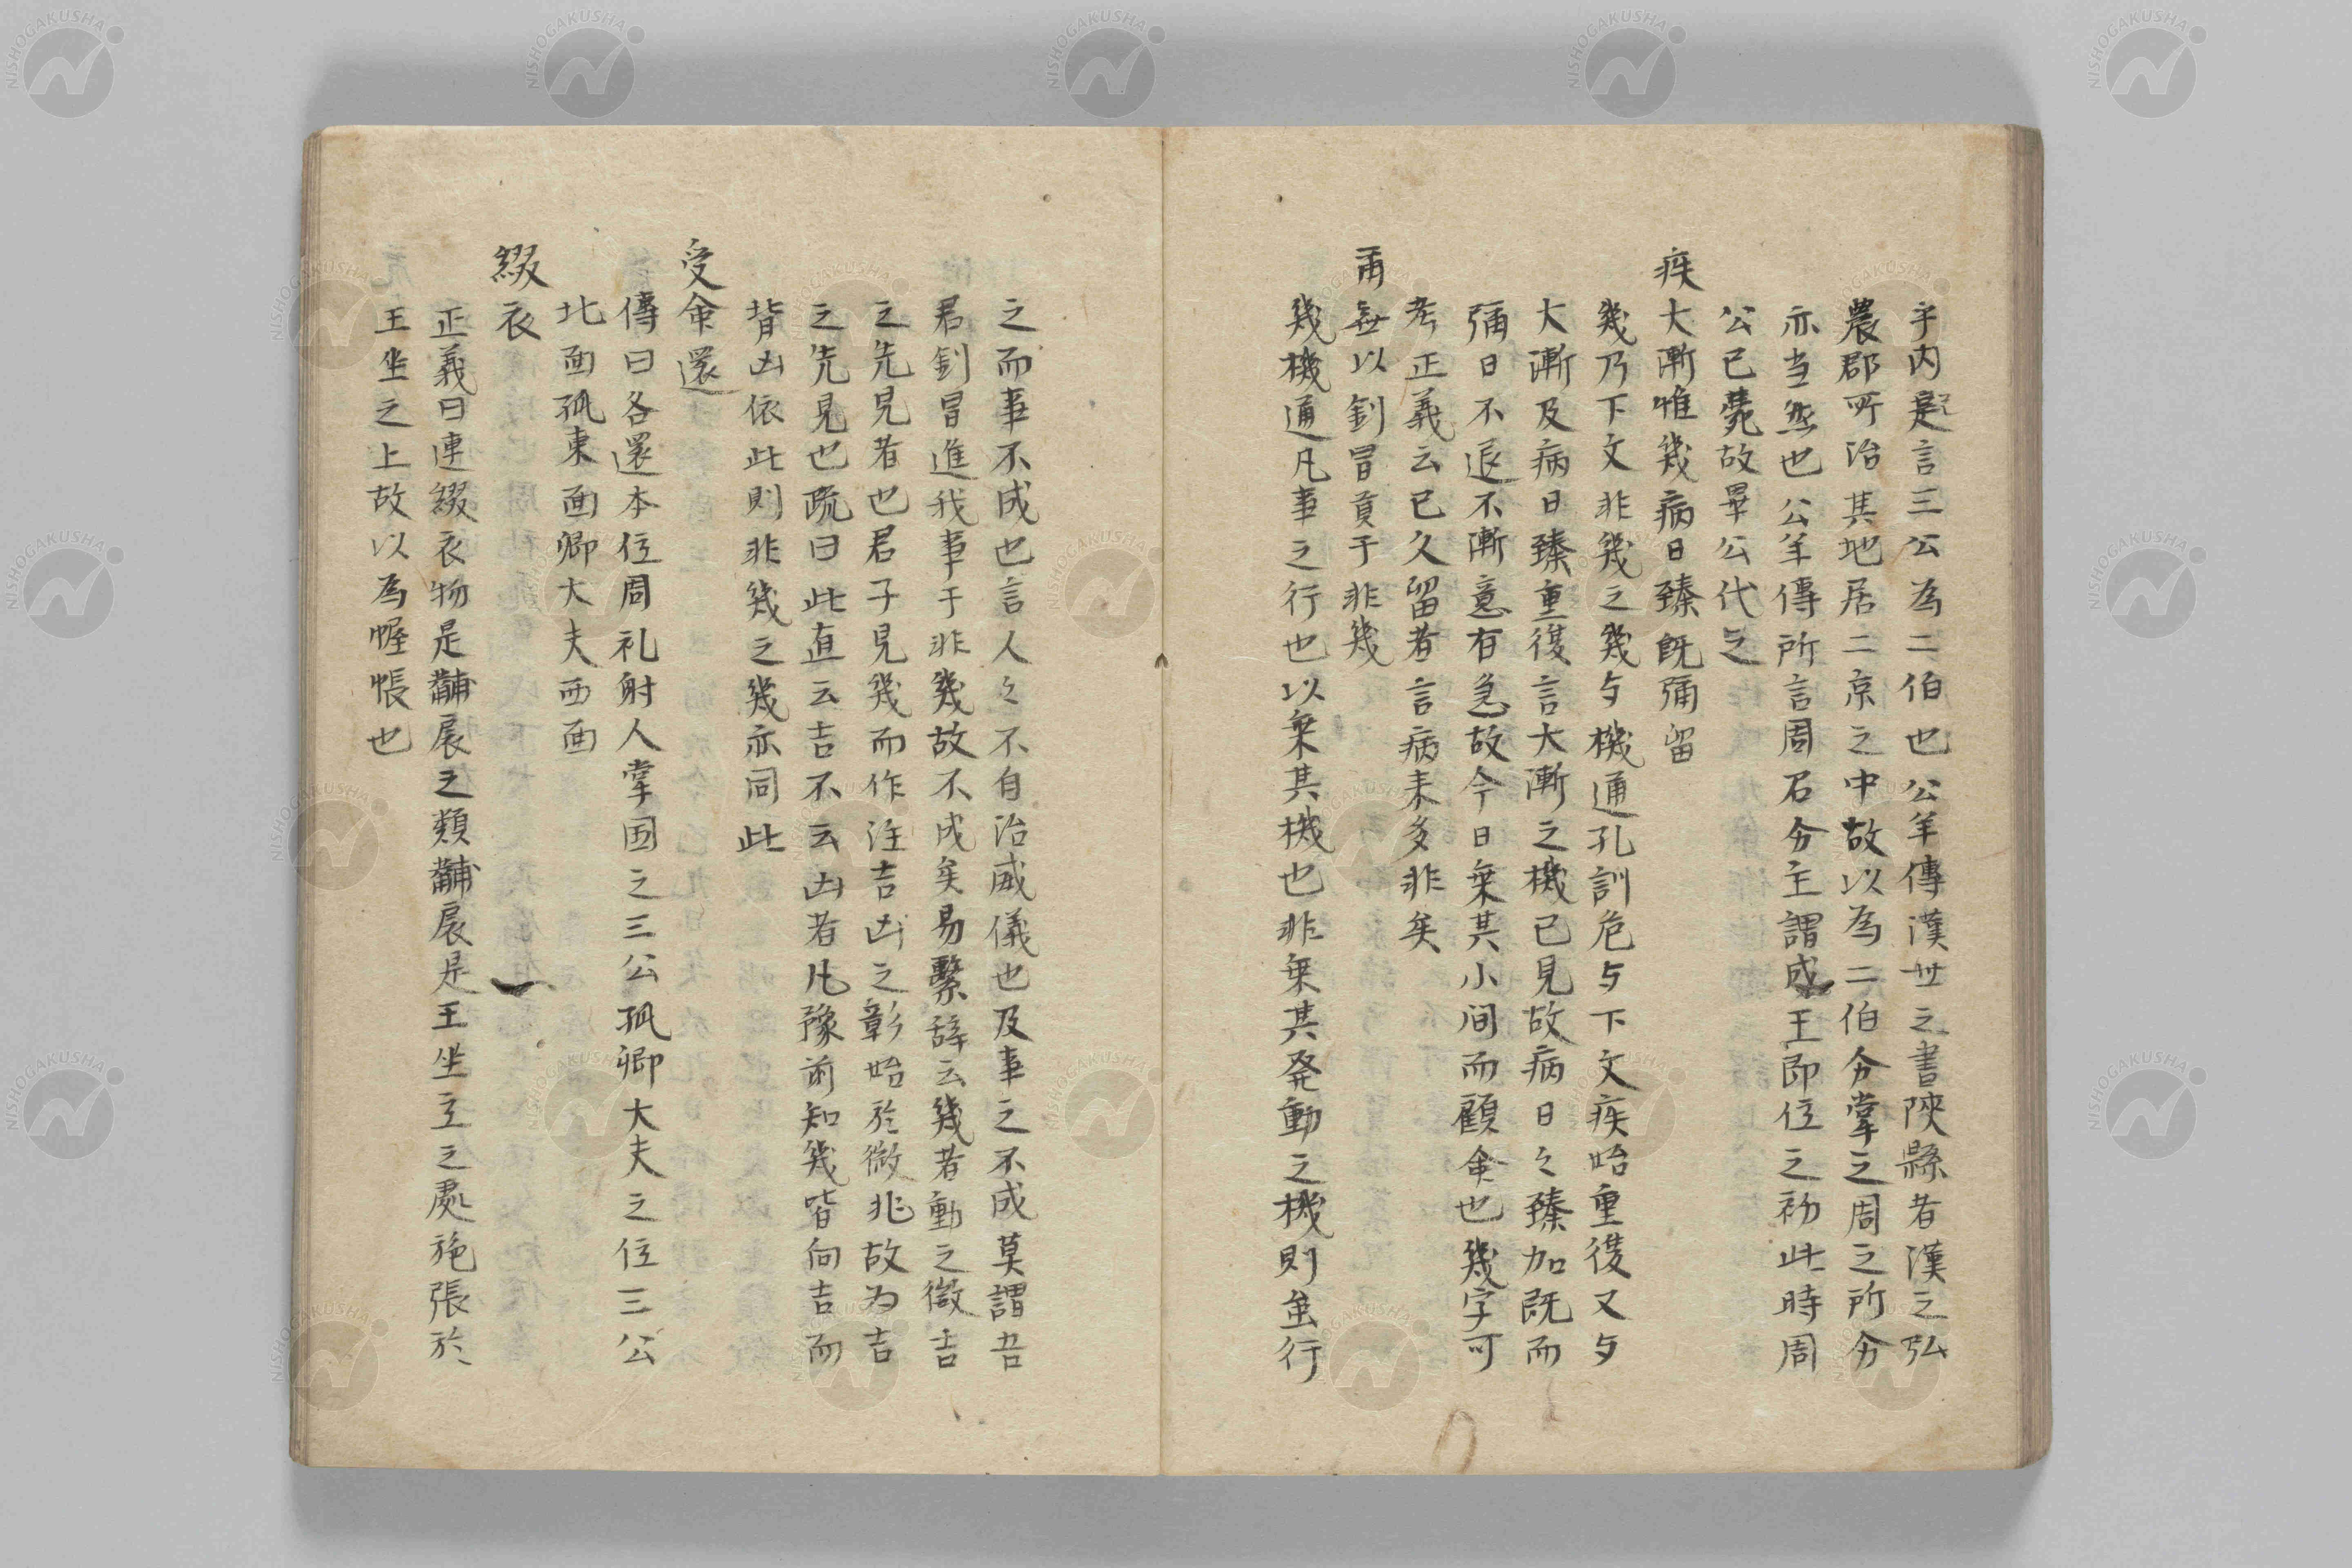 乎内是言三公為二伯也公羊傳漢世之書陝縣者漢之弘
農郡所治其地居二京之中故以為二伯分掌之周之所分
亦当然也公羊傳所言周召分主謂成王即位之初此時周
公已薨故畢公代之
疾大漸惟幾病日臻既彌留
幾乃下文非幾之幾与機通孔訓危与下文疾始重復又与
大漸及病日臻重復言大漸之機已見故病日々臻加既而
彌日不退不漸意有急故今日乗其小间而顧命也幾字可
考正義云已久留者言病来多非矣
爾無以釗冒貢于非幾
幾機通凡事之行也以乗其機也非乗其発動之機則虽行
之而事不成也言人々不自治威儀也及事之不成莫謂吾
君釗冒進我事于非幾故不成矣易繫辞云幾者動之微吉
之先見者也君子見幾而作注吉凶之彰始於微兆故为吉
之先見也疏曰此直云吉不云凶者凡豫前知幾皆向吉而
背凶依此則非幾之幾亦同此
受命還
傳曰各還本位周礼射人掌国之三公孤卿大夫之位三公
北面孤東面卿大夫西面
綴衣
正義曰連綴衣物是黼扆之類黼扆是王坐立之處施張於
王坐之上故以為幄帳也
NISHOGAKUSHA